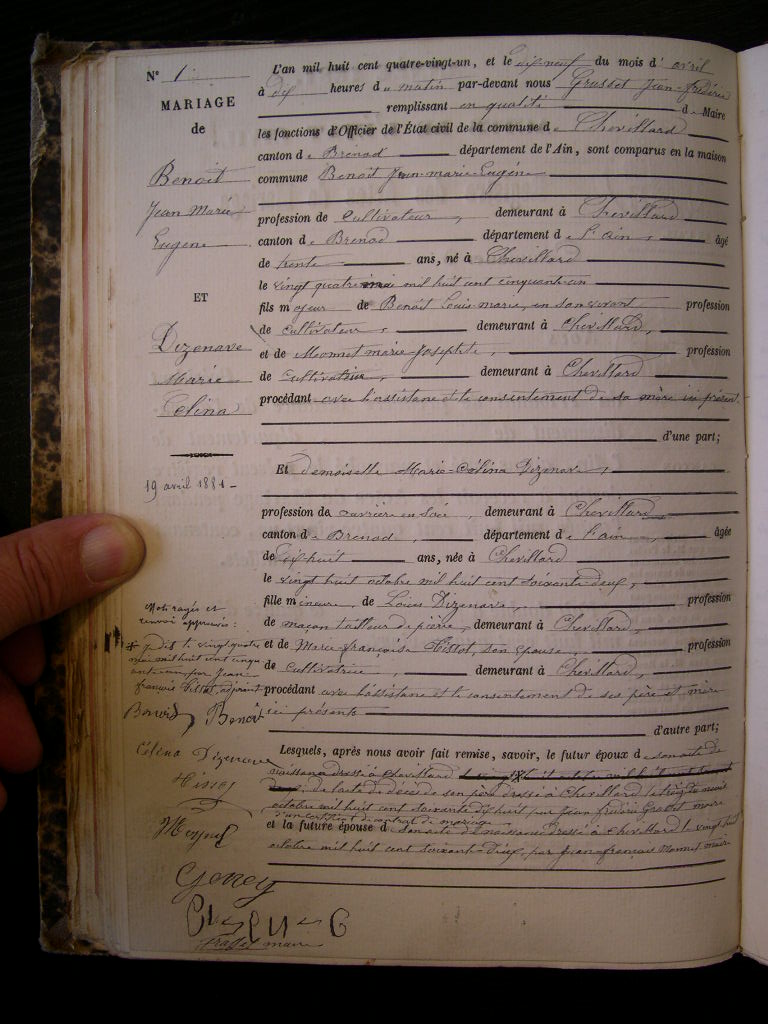 N° 1
MARIAGE
de
Benoit
Jean Marie
Eugène
ET
Dizenave
Marie
Célina
19 avril 1881 -
L'an mil huit cent quatre-vingt-un, et le dix-neuf du mois d' avril
à dix heures du matin par-devant nous Grasset Jean-Frédéric
remplissant en qualité de Maire
les fonctions d'Officier de l'État civil de la commune de Chevillard
canton de Brenod département de l'Ain, sont comparus en la maison
commune Benoit Jean-marie-Eugène
profession de Cultivateur, demeurant à Chevillard
canton de Brenod département de l'ain, âgé
de trente ans, né à Chevillard
le vingt quatre mai mil huit cent cinquante-un
fils majeur de Benoit Louis-marie, en son vivant profession
de Cultivateur, demeurant à Chevillard,
et de Monnet marie-Josephte, profession
de Cultivatrice, demeurant à Chevillard
procédant avec l'assistance et le consentement de sa mère ici présente
d'une part;
Et demoiselle Marie-Célina Dizenave,
profession de ouvrière en soie, demeurant à Chevillard
canton de Brenod, département de l'ain, âgée
de dix-huit ans, née à Chevillard
le vingt huit octobre mil huit cent soixante deux,
fille mineure, de Louis Dizenave, profession
de maçon tailleur de pierre, demeurant à Chevillard,
et de Marie-françoise Hissot, son épouse, profession
de Cultivatrice, demeurant à Chevillard,
procédant avec l'assistance et le consentement de ses père et mère
ici présents
d'autre part;
Mots rayés et
renvoi approuvés:
Lesquels, après nous avoir fait remise, savoir, le futur époux de son acte de
naissance dressé à Chevillard
de l'acte de décès de son père dressé à Chevillard le du mois
octobre mil huit cent soixante dix huit par Jean frédéric Grasset maire
d'un certificat de contrat de mariage
et la future épouse de son acte de naissance dressé à Chevillard le vingt huit
octobre mil huit cent soixante-deux, par Jean-françois Monnet maire
Benoit
Célina Dizenave
Geney
Grasset maire